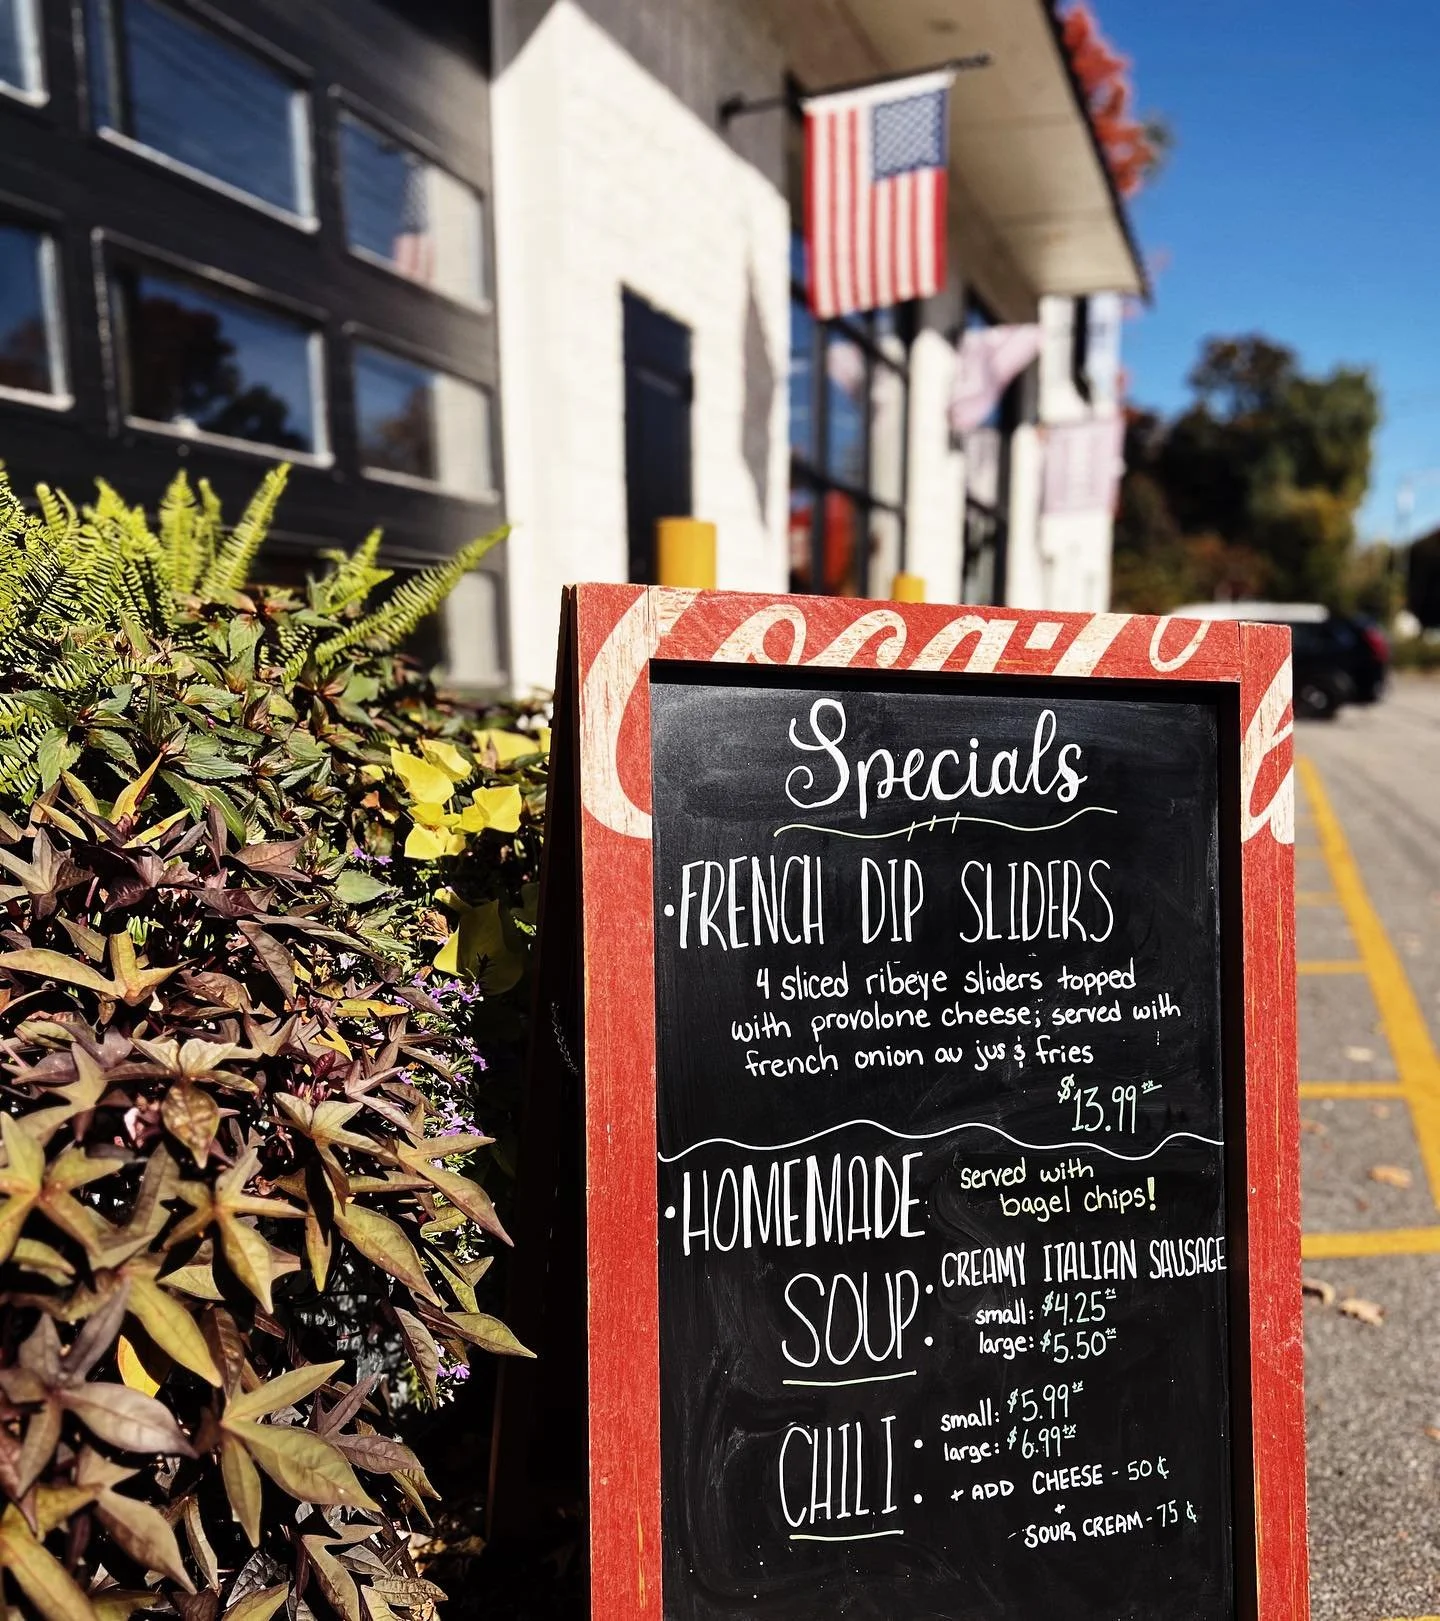 Coca-Co
Specials
• FRENCH DIP SLIDERS
4 sliced ribeye sliders topped
with provolone cheese; served with
french onion au jus & fries
$13.99 +tx
• HOMEMADE
SOUP:
served with
bagel chips!
CREAMY ITALIAN SAUSAGE
small: $4.25 +tx
large: $5.50 +tx
CHILI:
small: $5.99 +tx
large: $6.99 +tx
+ ADD CHEESE - 50¢
+
SOUR CREAM - 75¢